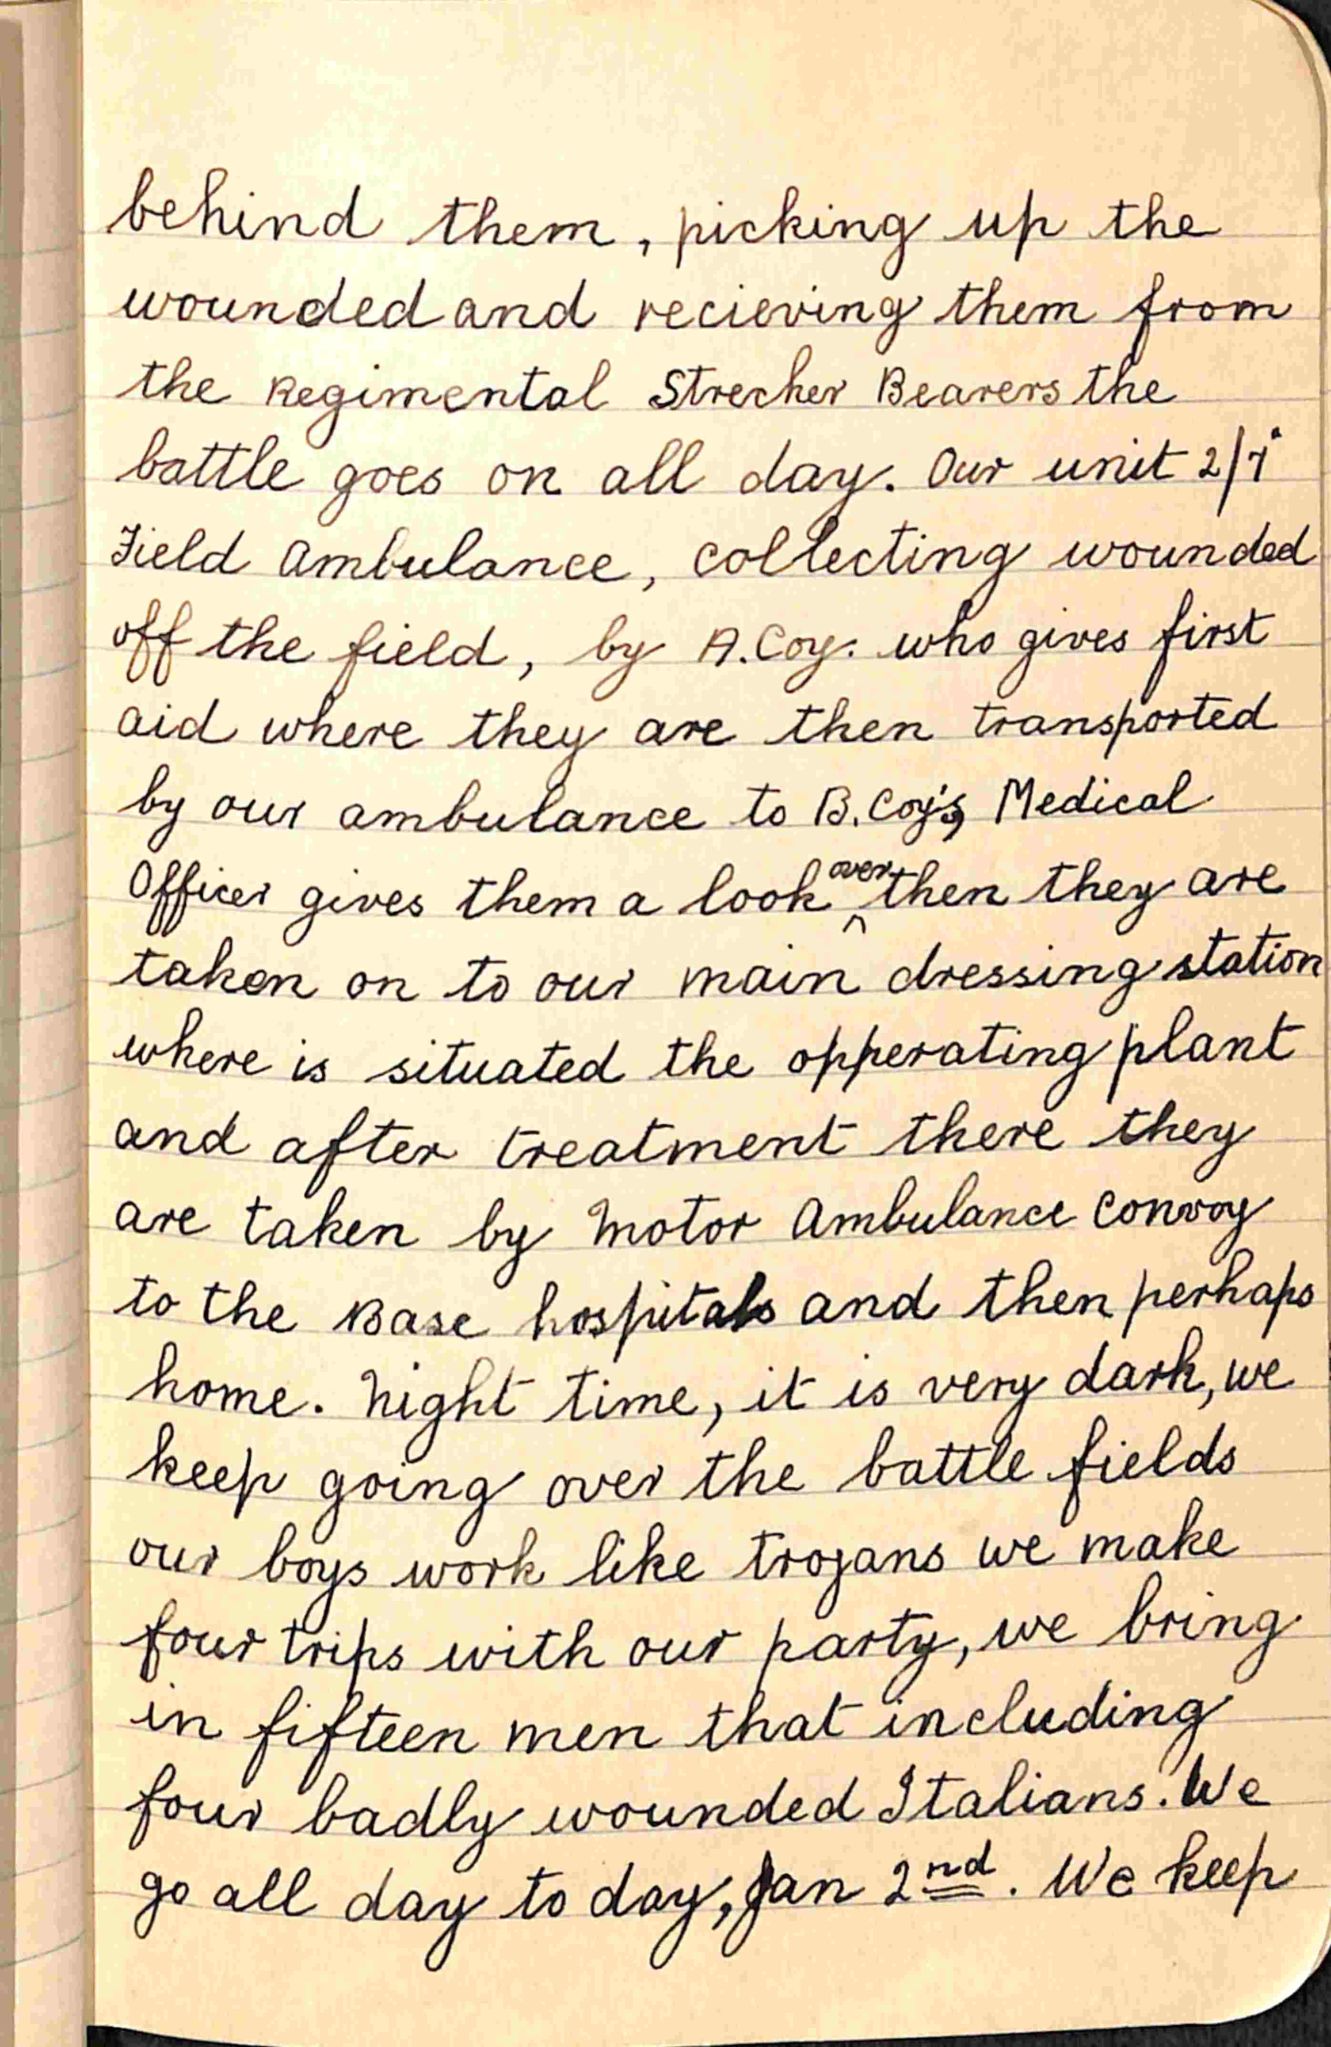 behind them, picking up the
wounded and recieving them from
the Regimental Strecher Bearers the
battle goes on all day. Our unit 2/1
Field Ambulance, collecting wounded
off the field, by A.Coy. who gives first
aid where they are then transported
by our ambulance to B.Coy's, Medical
Officer gives them a look over then they are
taken on to our main dressing station
where is situated the opperating plant
and after treatment there they
are taken by Motor Ambulance Convoy
to the Base hospitals and then perhaps
home. Night time, it is very dark, we
keep going over the battle fields
our boys work like trojans we make
four trips with our party, we bring
in fifteen men that including
four badly wounded Italians. We
go all day to day, Jan 2nd. We keep